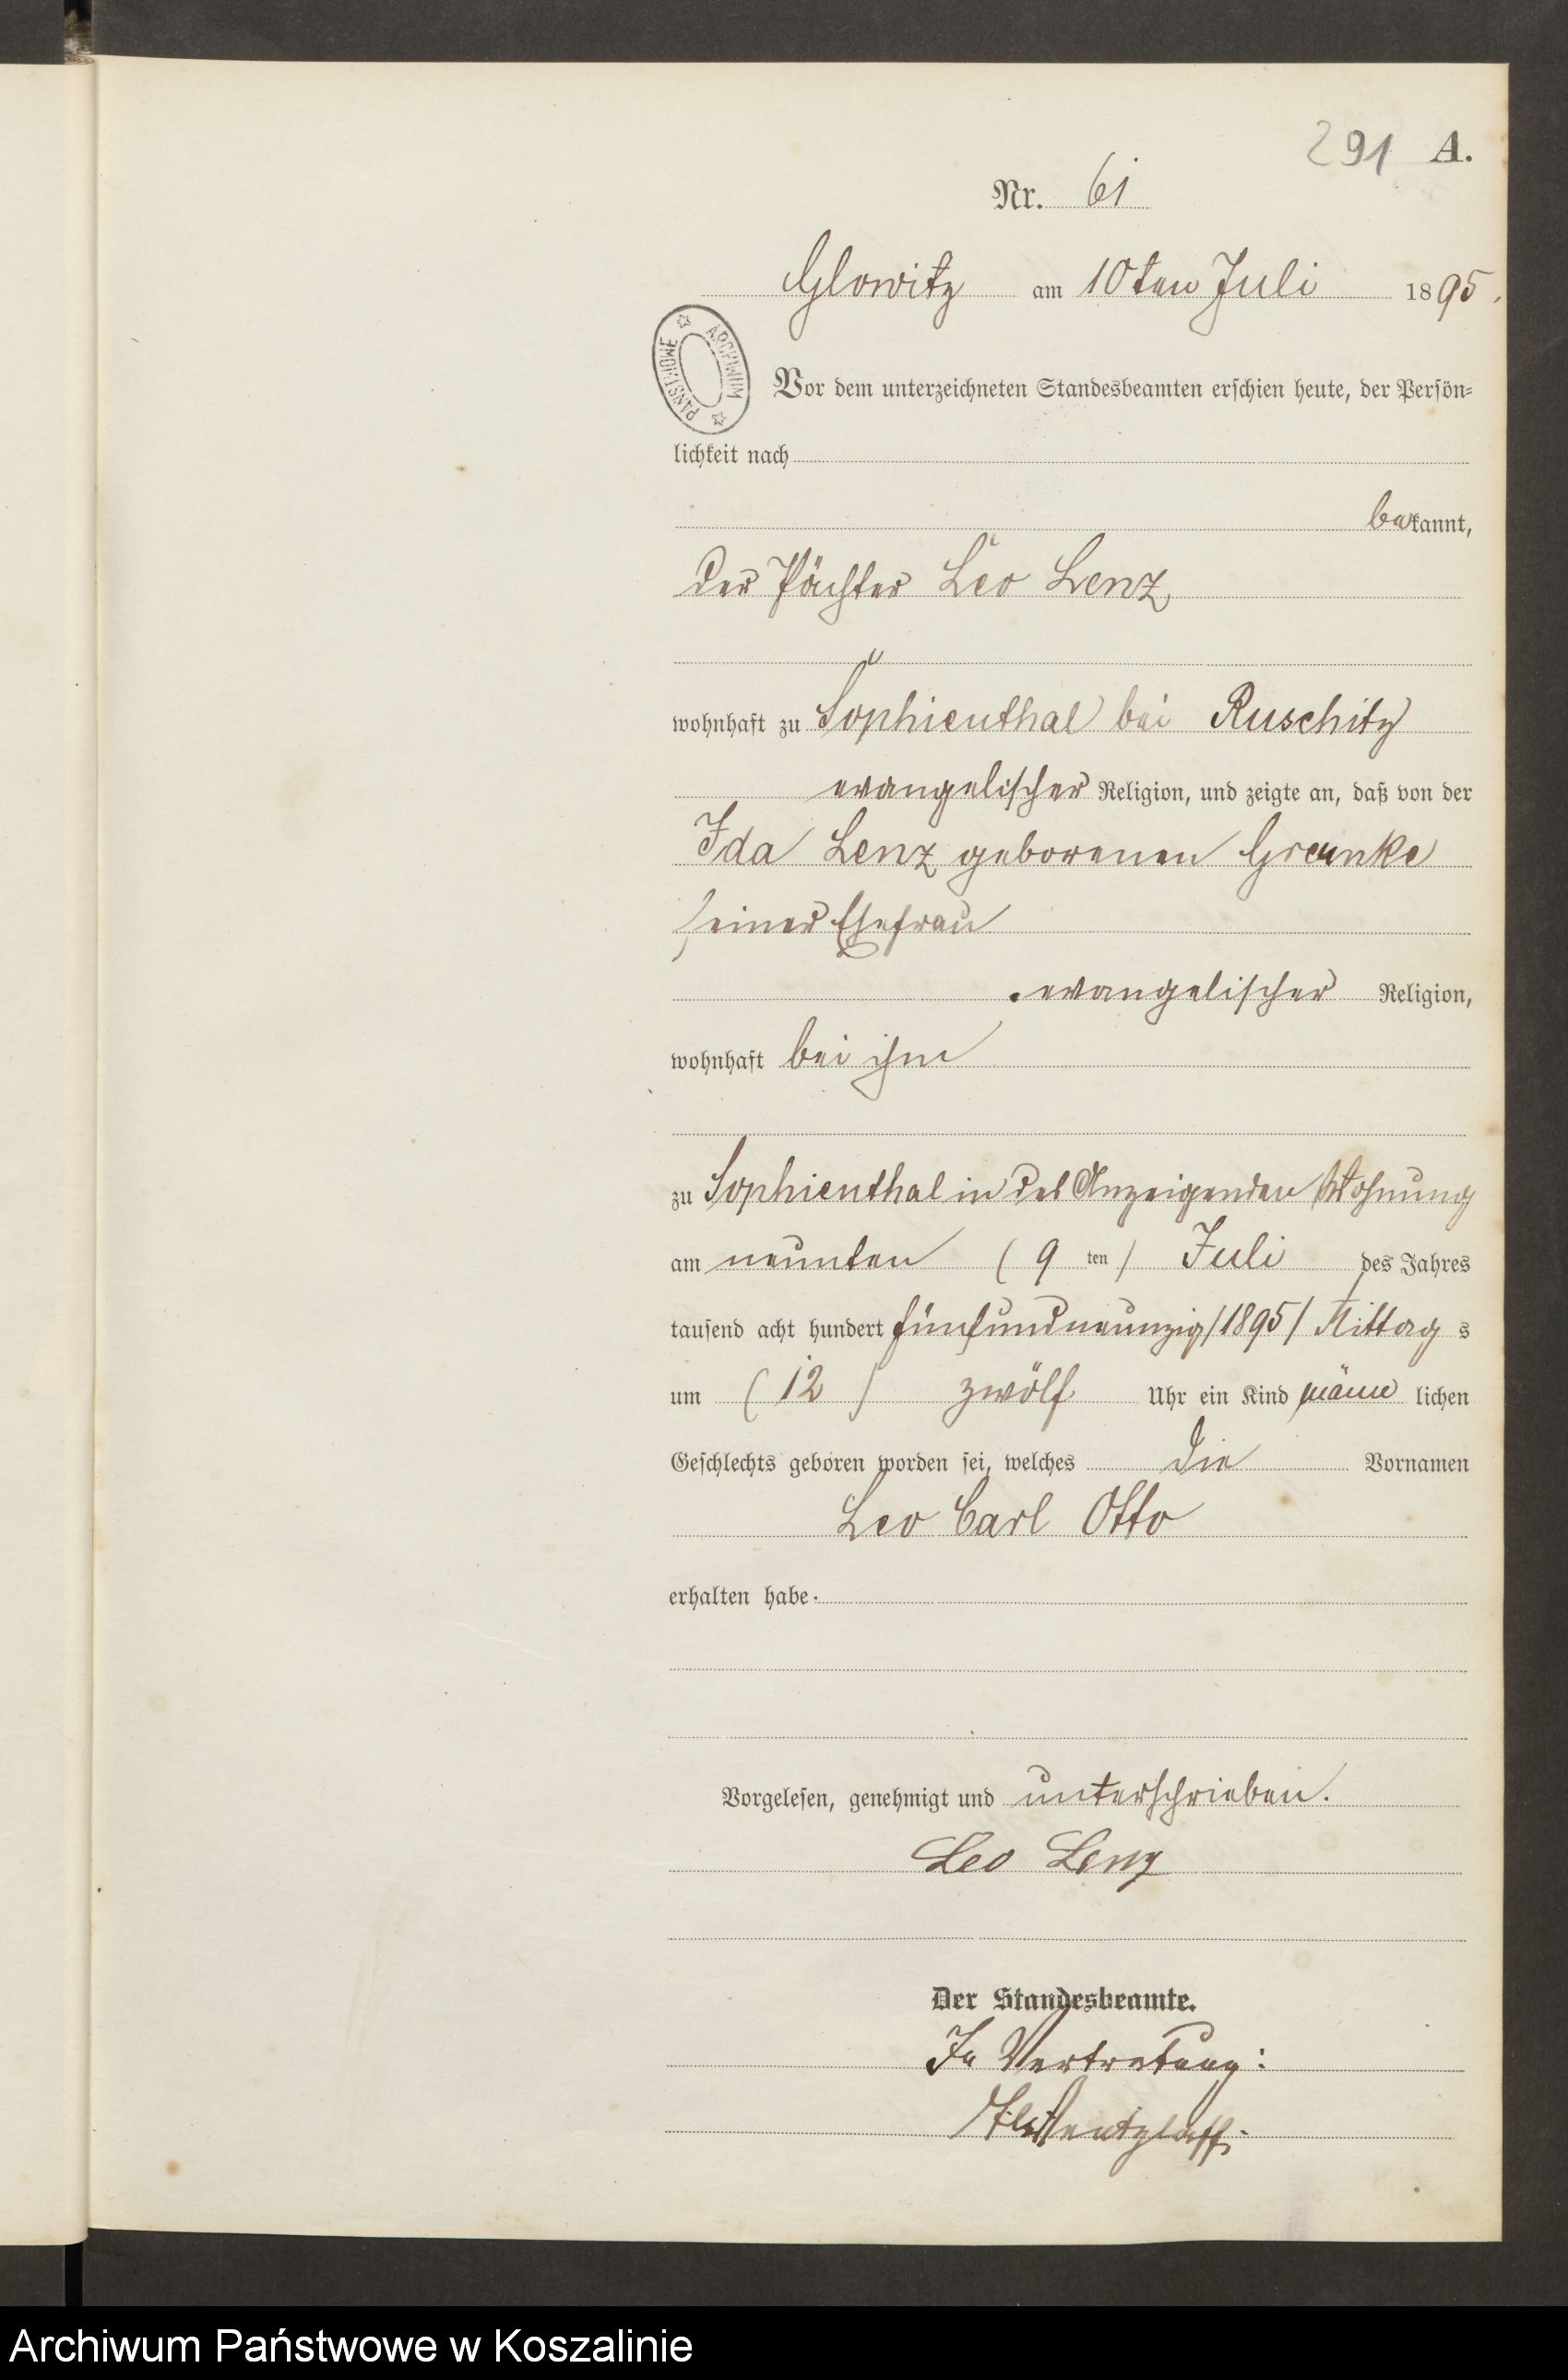 291 A.
Nr. 61
Glowitz am 10ten Juli 1895.
ARCHIWUM PAŃSTWOWE
Vor dem unterzeichneten Standesbeamten erschien heute, der Persön=
lichkeit nach
bekannt,
der Pächter Leo Lenz
wohnhaft zu Sophienthal bei Ruschitz
evangelischer Religion, und zeigte an, daß von der
Ida Lenz geborenen Granke
seiner Ehefrau
evangelischer Religion,
wohnhaft bei ihm
zu Sophienthal in des Anzeigenden Wohnung
am neunten (9 ten) Juli des Jahres
tausend acht hundert fünfundneunzig /1895/ Mittag s
um (12) zwölf Uhr ein Kind männ lichen
Geschlechts geboren worden sei, welches die Vornamen
Leo Carl Otto
erhalten habe.
Vorgelesen, genehmigt und unterschrieben.
Leo Lenz
Der Standesbeamte.
In Vertretung:
Archiwum Państwowe w Koszalinie